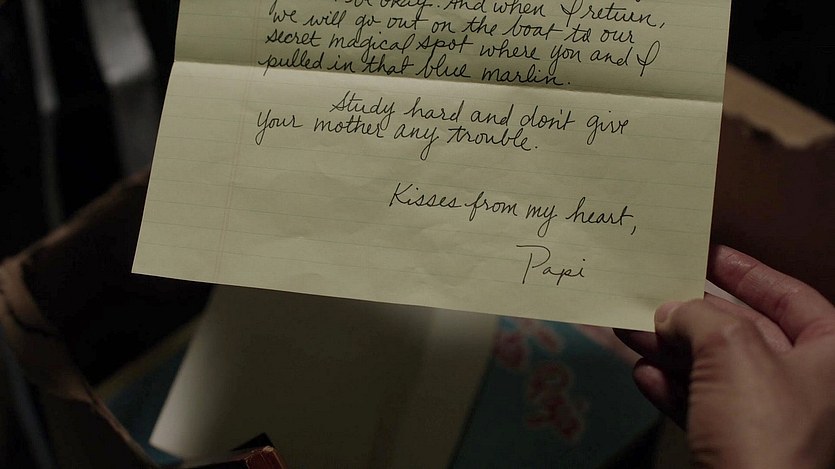 okay. And when I return,
we will go out on the boat to our
secret magical spot where you and I
pulled in that blue marlin.
Study hard and don't give
your mother any trouble.
Kisses from my heart,
Papi